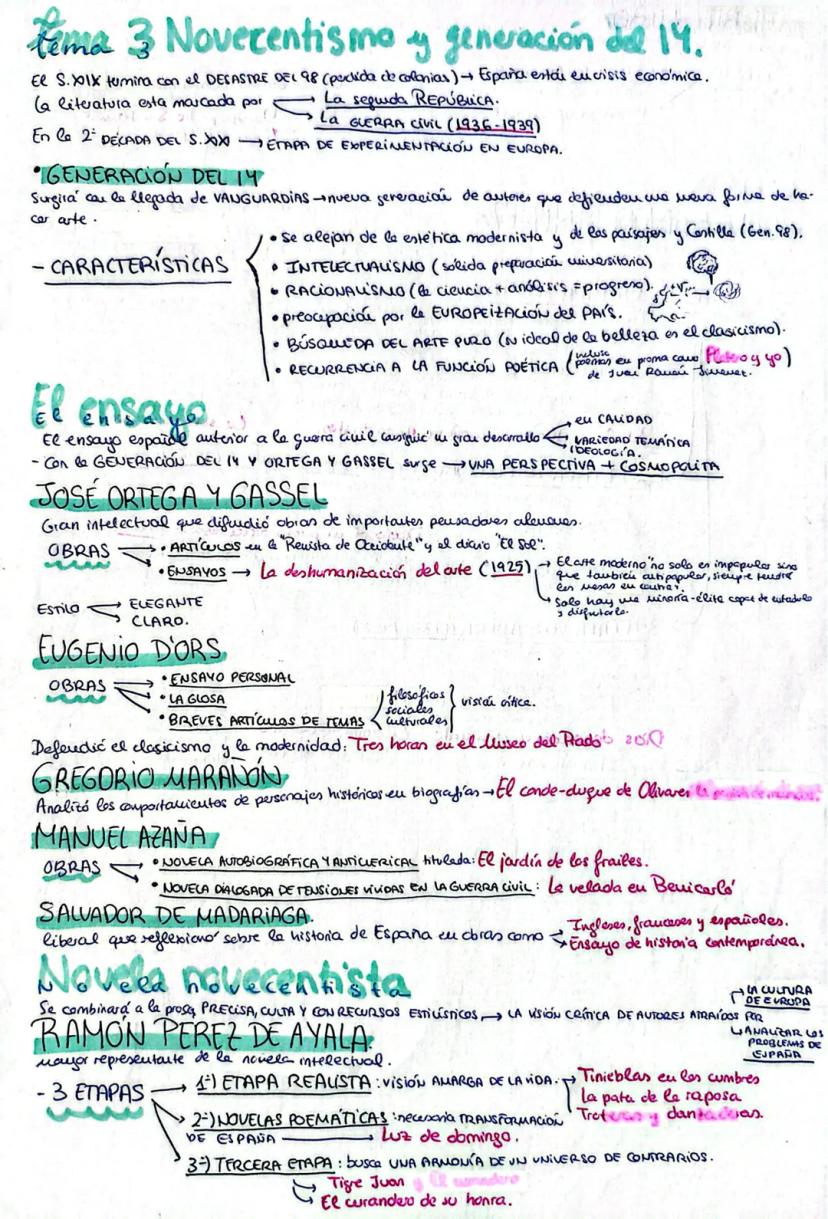 Tema 3 Novecentismo y generación del 14.
El S.XIX termina con el DESASTRE DEL 98 (perdida de colonias) → España está en crisis económica.
La literatura esta marcada por → La segunda REPÚBLICA.
→ La GUERRA CIVIL (1936-1939)
En la 2ª DÉCADA DEL S.XXI → ETAPA DE EXPERIMENTACIÓN EN EUROPA.
• GENERACIÓN DEL 14
Surgirá con la llegada de VANGUARDIAS → nueva generación de autores que defienden una nueva forma de ha-
cer arte.
- CARACTERÍSTICAS
• Se alejan de la estética modernista y de los paisajes y Castilla (Gen.98).
• INTELECTUALISMO (solida preparación universitaria)
• RACIONALISMO (la ciencia + análisis = progreso).
• preocupación por la EUROPEIZACIÓN del PAÍS.
• BÚSQUEDA DEL ARTE PURO (su ideal de la belleza es el clasicismo).
• RECURRENCIA A LA FUNCIÓN POÉTICA (incluso poemas en prosa como Platero y yo)
de Juan Ramón Jiménez.
El ensayo
El ensayo español anterior a la guerra civil consigue un gran desarrollo → en CALIDAD
→ VARIEDAD TEMÁTICA
→ IDEOLOGÍA.
- Con la GENERACIÓN DEL 14 Y ORTEGA Y GASSEL surge → UNA PERSPECTIVA + COSMOPOLITA
JOSÉ ORTEGA Y GASSEL
Gran intelectual que difundió obras de importantes pensadores alemanes.
OBRAS → • ARTÍCULOS en la "Revista de Occidente" y el diario "El Sol".
→ • ENSAYOS → La deshumanización del arte (1925)
→ El arte moderno "no solo es impopular sino
que también antipopular, siempre tendrá
las masas en contra".
→ Solo hay una minoría-élite capaz de entenderlo
y disfrutarlo.
ESTILO → ELEGANTE
→ CLARO.
EUGENIO D'ORS
OBRAS → • ENSAYO PERSONAL
→ • LA GLOSA
→ • BREVES ARTÍCULOS DE TEMAS filosóficos sociales culturales } visión crítica.
Defendió el clasicismo y la modernidad: Tres horas en el Museo del Prado
GREGORIO MARAÑÓN
Analizó los comportamientos de personajes históricos en biografías → El conde-duque de Olivares
MANUEL AZAÑA
OBRAS → • NOVELA AUTOBIOGRÁFICA Y ANTICLERICAL titulada: El jardín de los frailes.
→ • NOVELA DIALOGADA DE TENSIONES VIVIDAS EN LA GUERRA CIVIL: La velada en Benicarló
SALVADOR DE MADARIAGA.
liberal que reflexionó sobre la historia de España en obras como → Ingleses, franceses y españoles.
→ Ensayo de historia contemporánea.
Novela novecentista
Se combinará a la prosa PRECISA, CULTA Y CON RECURSOS ESTILÍSTICOS, → LA VISIÓN CRÍTICA DE AUTORES ATRAÍDOS POR
→ LA CULTURA
DE EUROPA
→ ANALIZAR LOS
PROBLEMAS DE
ESPAÑA
RAMÓN PEREZ DE AYALA.
mayor representante de la novela intelectual.
- 3 ETAPAS → 1ª) ETAPA REALISTA: VISIÓN AMARGA DE LA VIDA. → Tinieblas en las cumbres
La pata de la raposa
Troteras y danzaderas.
→ 2ª) NOVELAS POEMÁTICAS: necesaria TRANSFORMACIÓN
DE ESPAÑA → Luz de domingo.
→ 3ª) TERCERA ETAPA: busca UNA ARMONÍA DE UN UNIVERSO DE CONTRARIOS.
→ Tigre Juan y El curandero
→ El curandero de su honra.